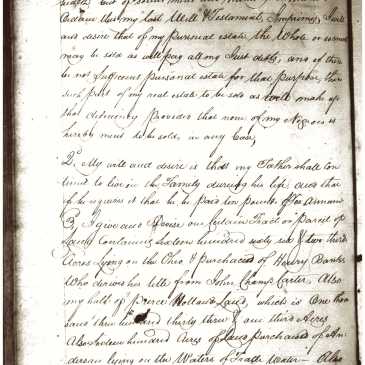 declare this my last Will & Testament, Imprimis, I will
and desire that of my personal estate the Whole or so much
may be sold as will pay all my Just debts, and if there
be not sufficient personal estate for that purpose, then
such part of my real estate to be sold as will make up
that deficiency provided that none of my Negroes is
hereby meant to be sold, in any Case,
2. My will and desire is that my Father shall Con
tinue to live in the Family during his life and that
if he requires it that he be paid ten pounds annum
3. I give and devise one Certain Tract or Parcel of
Land Containing sixteen hundred sixty six & two third
Acres Lying on the Ohio & purchased of Henry Banks
Who derives his title from John Champ Carter, Also
my half of Land, which is One thou
sand three hundred thirty three & one third Acres
Also sixteen hundred Acres of Land Purchased of An
derson lying on the Waters of Trade Water – Also